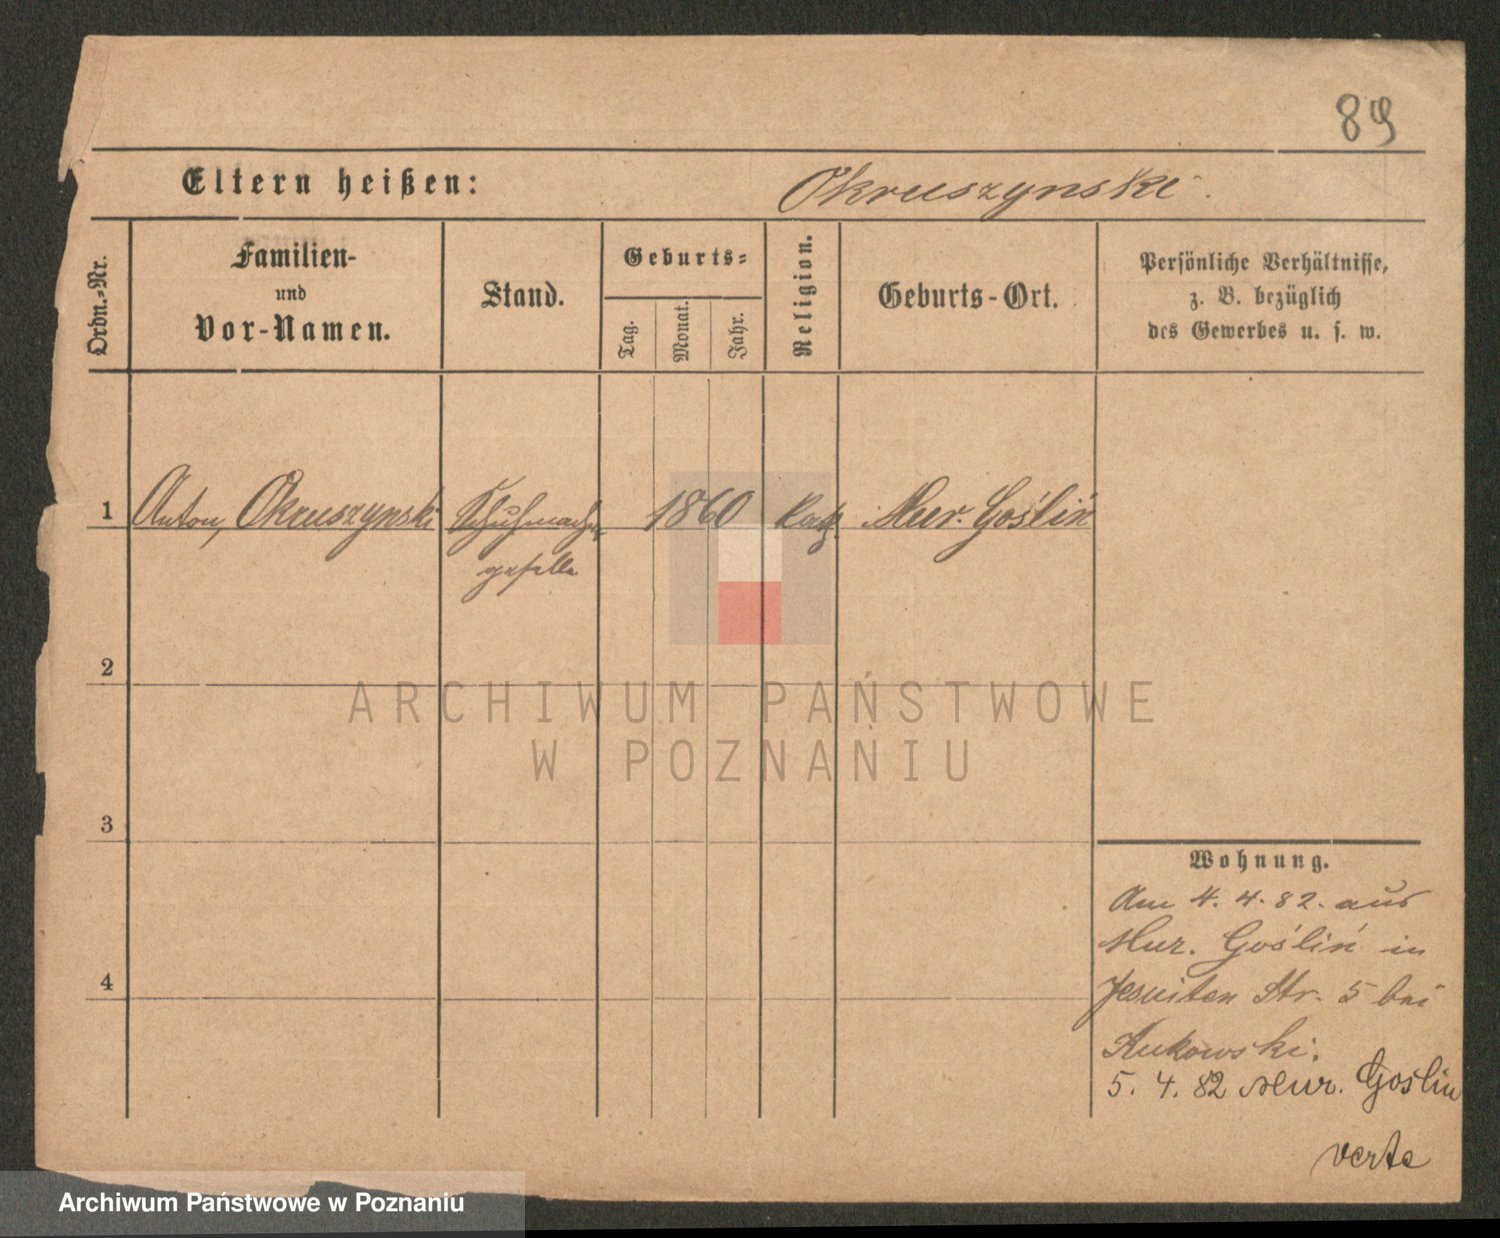 89
Eltern heißen:
Okruszynski.
Ordn.-Nr.
Familien-
und
Vor-Namen.
Stand.
Geburts-
Tag.
Monat.
Jahr.
Religion.
Geburts-Ort.
Persönliche Verhältnisse,
z. B. bezüglich
des Gewerbes u. s. w.
1 Anton, Okruszynski Schuhmacher- 1860 Kath. Mur. Goślin
geselle
2
3
4
Wohnung.
Am 4. 4. 82. aus
Mur. Goślin in
Jesuiten Str. 5 bei
5. 4. 82 Mur. Goslin
verte
ARCHIWUM PAŃSTWOWE
W POZNANIU
Archiwum Państwowe w Poznaniu